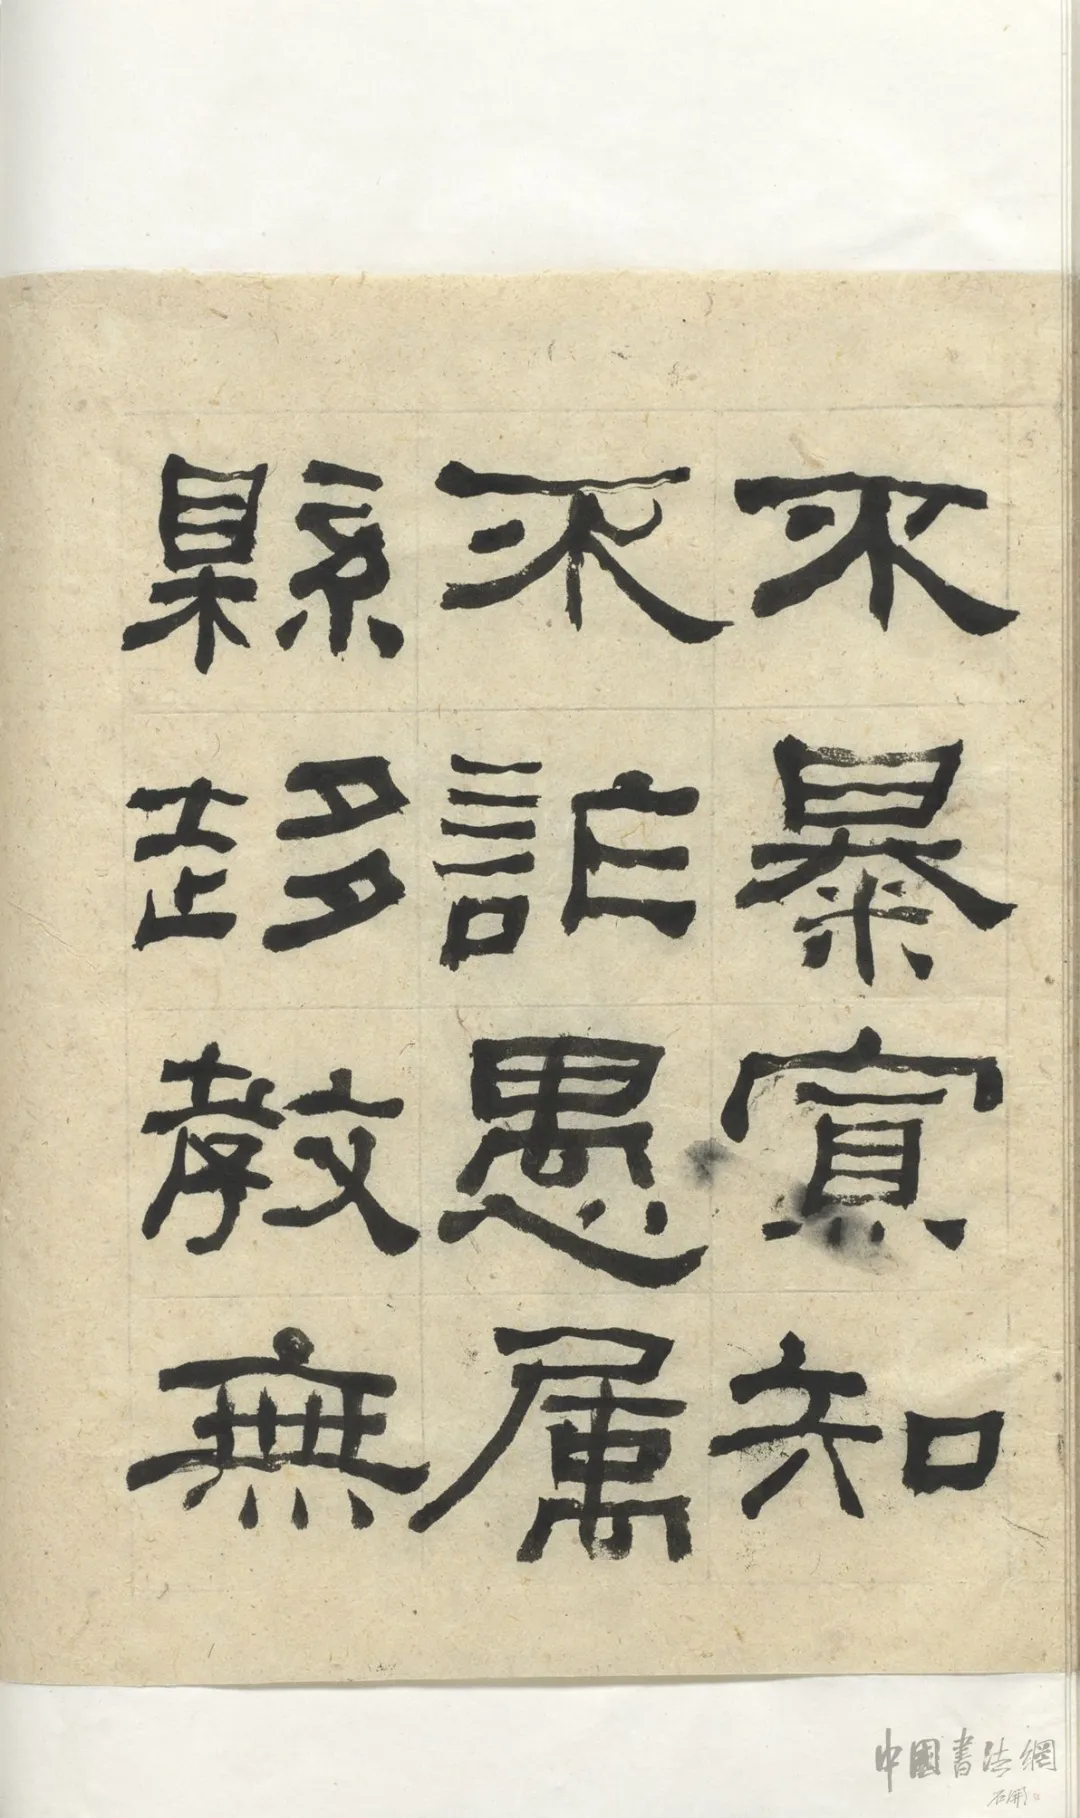 不暴寡知
不詐愚属
縣趍教無
中國書法網